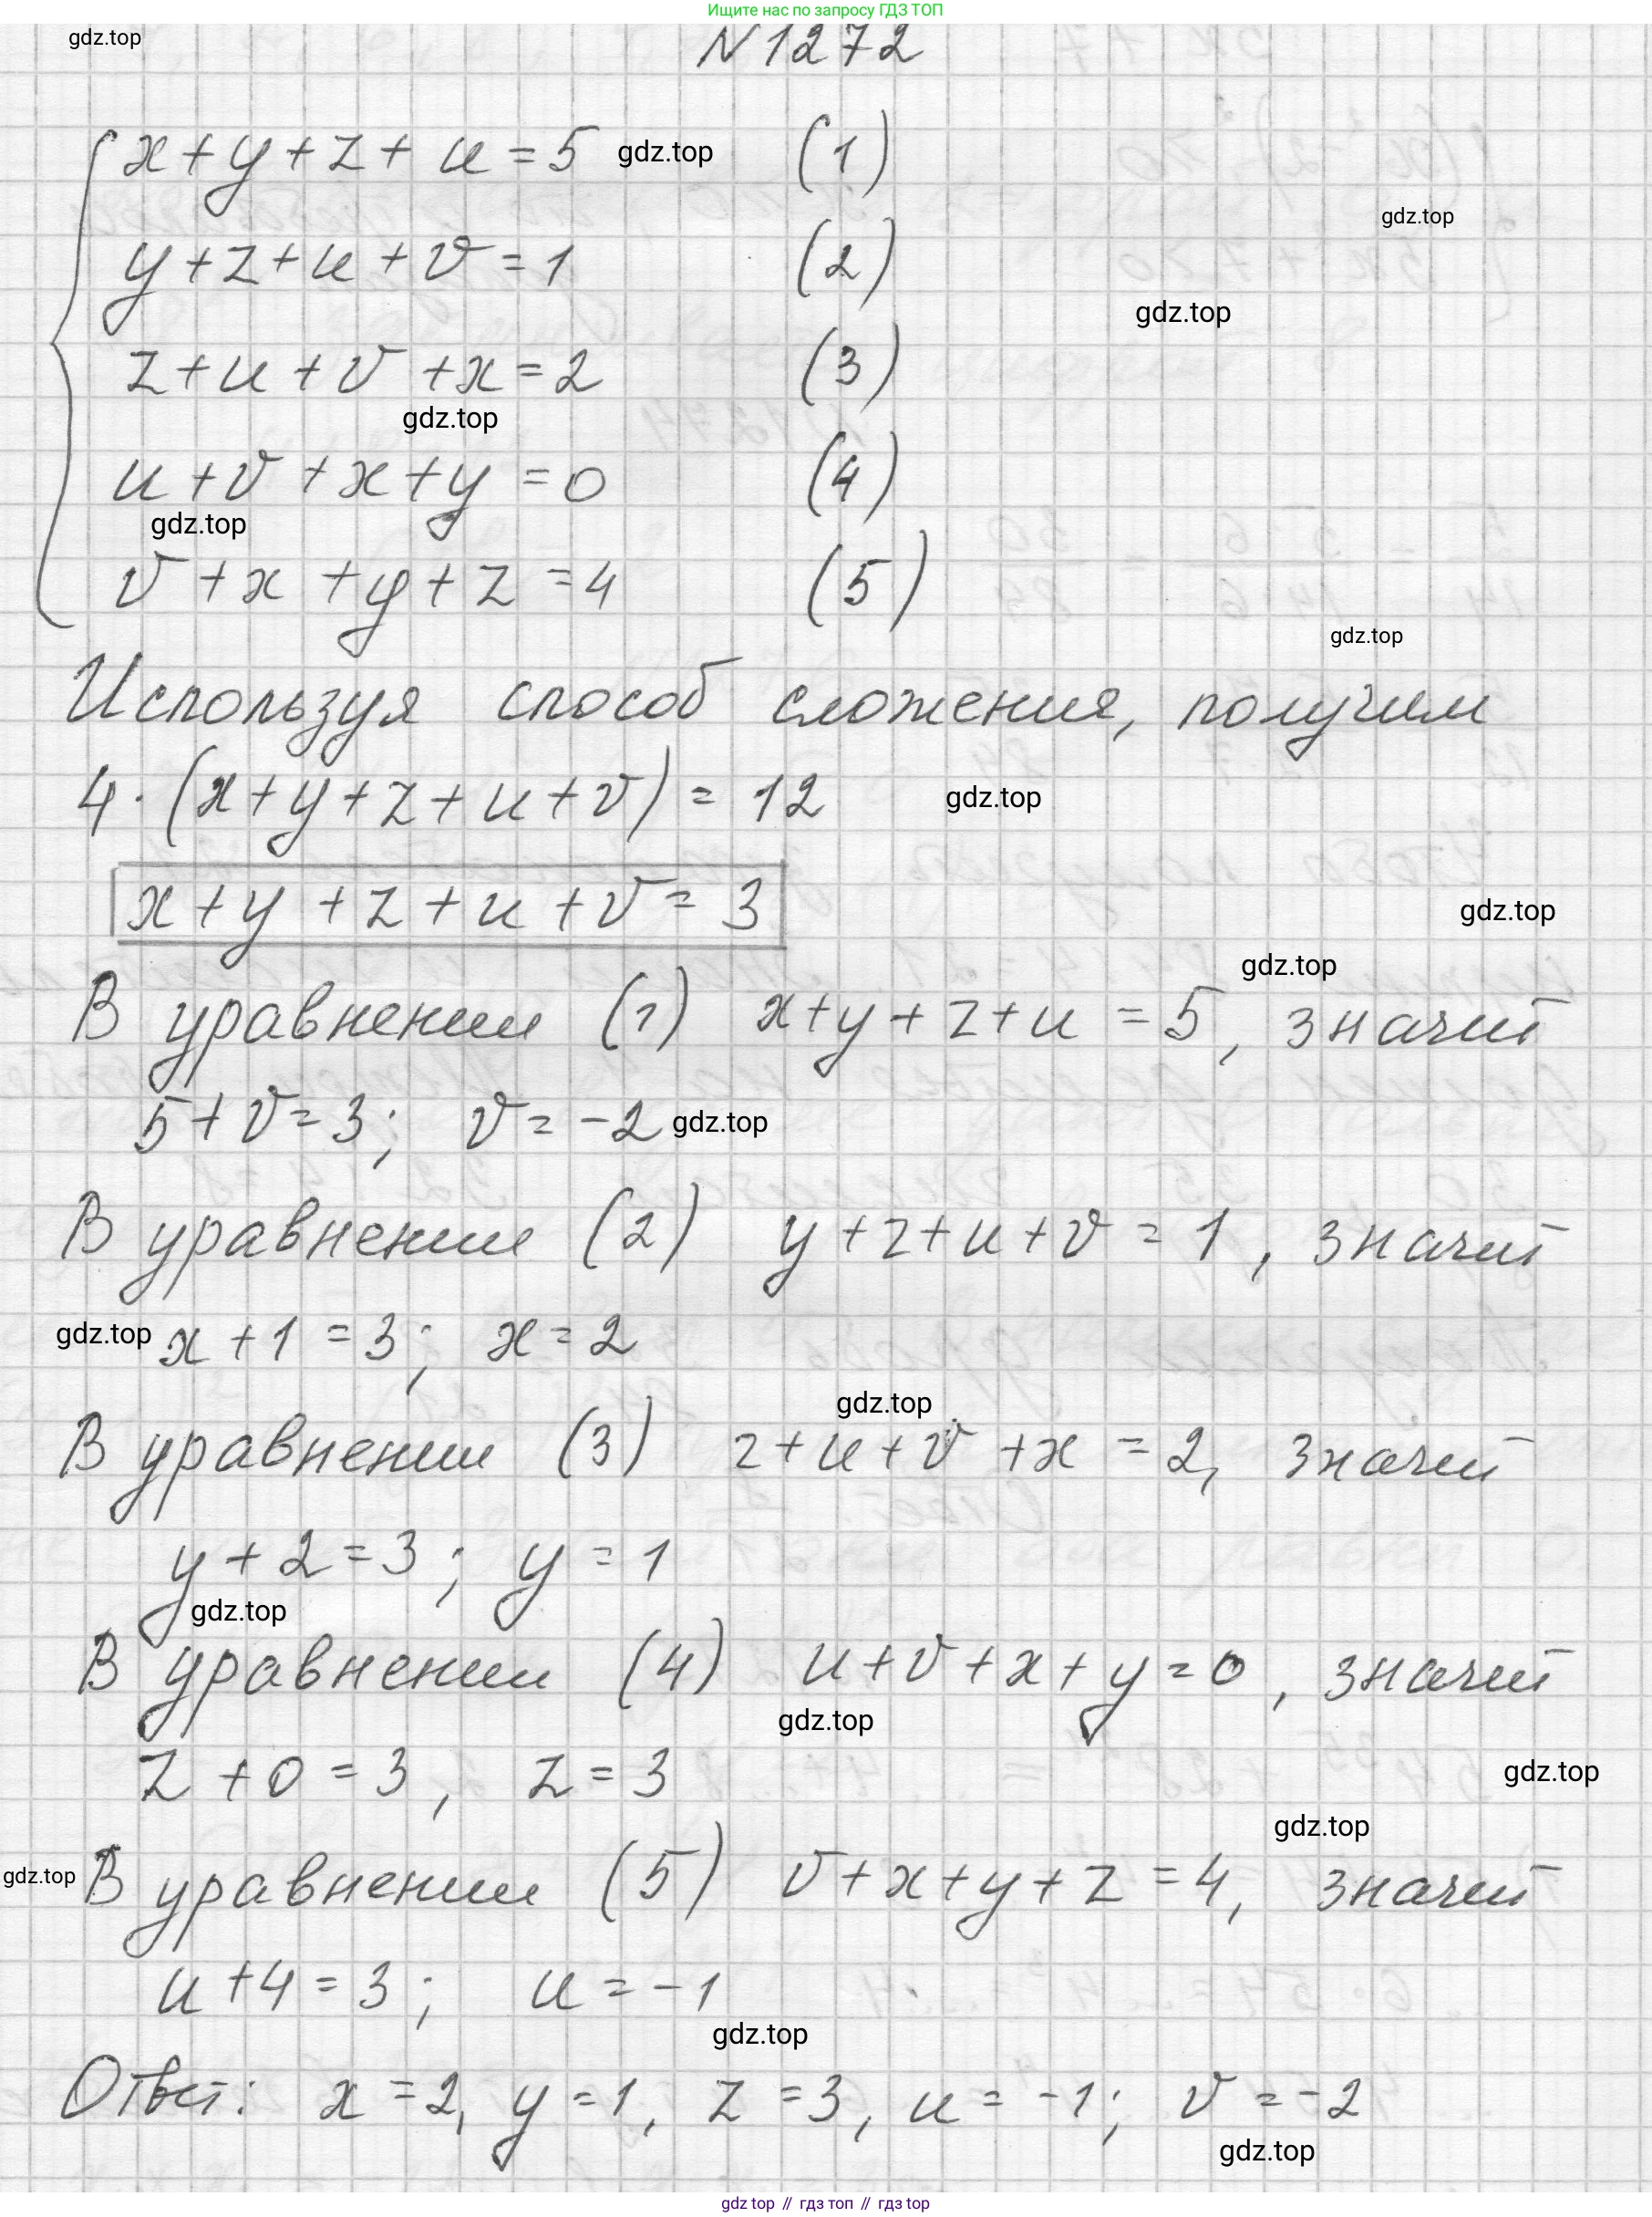 Ищите нас по запросу ГДЗ ТОП
gdz.top
N 1272
x + y + z + u = 5 gdz.top (1)
gdz.top
y + z + u + v = 1 (2)
gdz.top
z + u + v + x = 2 (3)
gdz.top
u + v + x + y = 0 (4)
gdz.top
v + x + y + z = 4 (5)
gdz.top
Используя способ сложения, получим
4 · (x + y + z + u + v) = 12 gdz.top
x + y + z + u + v = 3
gdz.top
gdz.top
В уравнении (1) x + y + z + u = 5, значит
5 + v = 3; v = -2 gdz.top
В уравнении (2) y + z + u + v = 1, значит
gdz.top x + 1 = 3; x = 2
gdz.top
В уравнении (3) z + u + v + x = 2, значит
y + 2 = 3; y = 1
gdz.top
В уравнении (4) u + v + x + y = 0, значит
gdz.top
z + 0 = 3, z = 3
gdz.top
gdz.top
gdz.top В уравнении (5) v + x + y + z = 4, значит
u + 4 = 3; u = -1
gdz.top
Ответ: x = 2, y = 1, z = 3, u = -1; v = -2
gdz.top
gdz top // гдз топ // гдз top